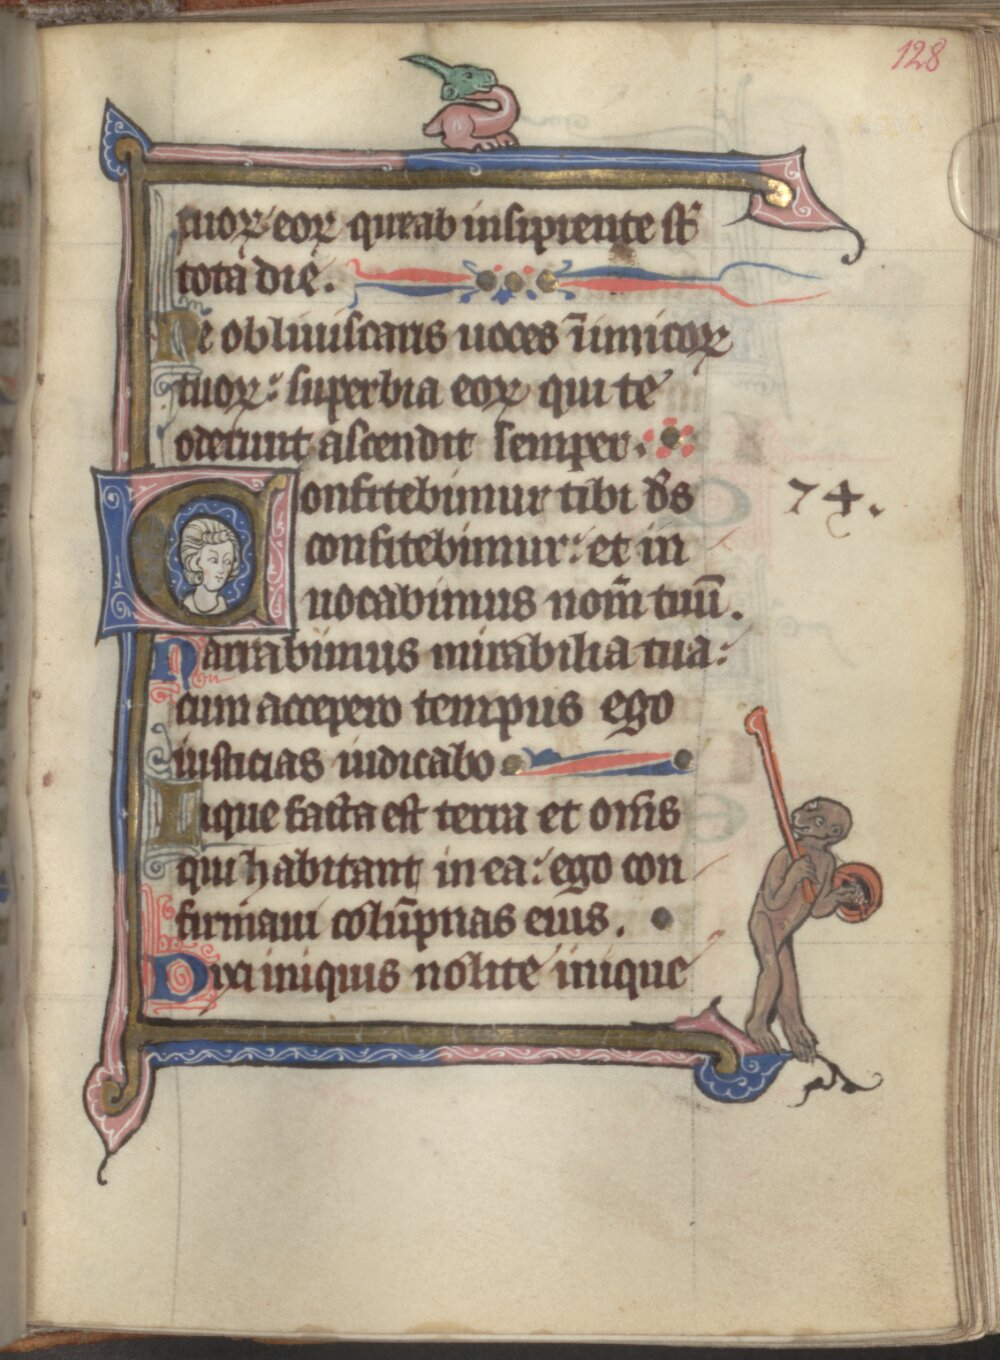 128
tuoꝝ eoꝝ que ab insipiente st̄
tota die.
Ne obliuiscaris uoces inimicoꝝ
tuoꝝ: superbia eoꝝ qui te
oderunt ascendit semper.
Confitebimur tibi d̄s
74.
confitebimur: et in
uocabimus nom̄ tuū.
Narrabimus mirabilia tua:
cum accepero tempus ego
iusticias iudicabo
Lique facta est terra et om̄s
qui habitant in ea: ego con
firmaui colūpnas eius.
Dixi iniquis nolite inique